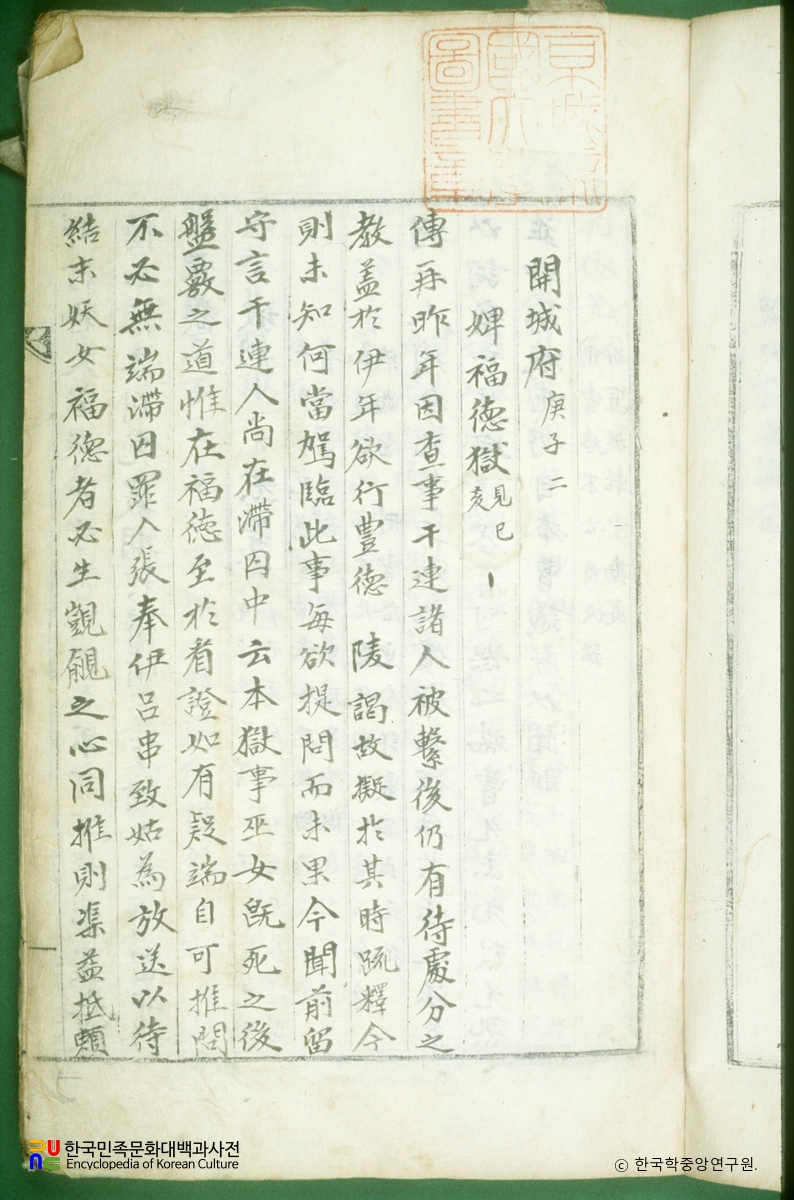 開城府 庚子 二
婢福德獄 見己亥
傳再昨年因查事干連諸人被繫後仍有待處分之
教盖於伊年欲行豊德 陵謁故擬於其時䟽釋今
則未知何當駕臨此事每欲提問而未果今聞前留
守言干連人尚在滯囚中云本獄事巫女旣死之後
盤覈之道惟在福德至於看證如有疑端自可推問
不必無端滯囚罪人張奉伊呂串致姑為放送以待
結末妖女福德者必生覬覦之心同推則渠益抵賴
京城
圖書章
한국민족문화대백과사전
Encyclopedia of Korean Culture
ⓒ 한국학중앙연구원.